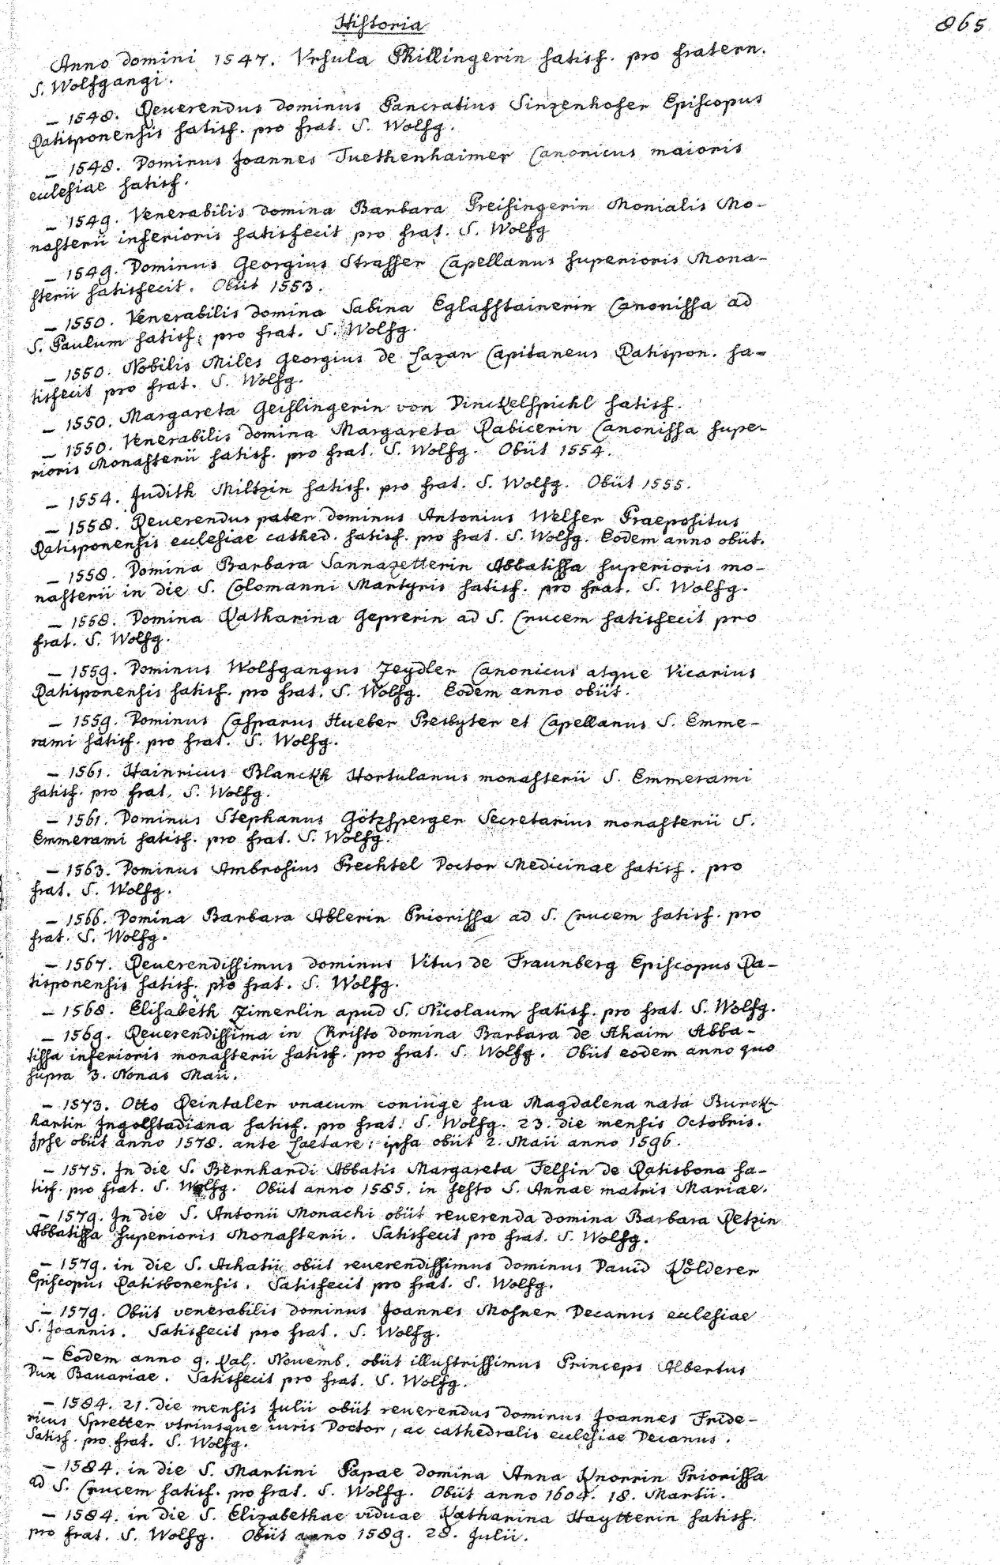 Historia 865
Anno domini 1547. Vrsula Phillingerin satisf. pro fratern.
S. Wolfgangi.
– 1548. Reuerendus dominus Pancratius Sinzenhofer Episcopus
Ratisponensis satisf. pro frat. S. Wolfg.
– 1548. Dominus Joannes Tuethenhaimer Canonicus maioris
ecclesiae satisf.
– 1549. Venerabilis domina Barbara Preisingerin Monialis Mo-
nasterii inferioris satisfecit pro frat. S. Wolfg
– 1549. Dominus Georgius Strasser Capellanus superioris Mona-
sterii satisfecit. Obiit 1553.
– 1550. Venerabilis domina Sabina Eglaffstainerin Canonissa ad
S. Paulum satisf. pro frat. S. Wolfg.
– 1550. Nobilis Miles Georgius de Lazan Capitaneus Ratispon. sa-
tisfecit pro frat. S. Wolfg.
– 1550. Margareta Geislingerin von Dinckelspichl satisf.
– 1550. Venerabilis domina Margareta Rabicerin Canonissa supe-
rioris Monasterii satisf. pro frat. S. Wolfg. Obiit 1554.
– 1554. Judith Miltzin satisf. pro frat. S. Wolfg. Obiit 1555.
– 1558. Reuerendus pater dominus Antonius Welser Praepositus
Ratisponensis ecclesiae cathed. satisf. pro frat. S. Wolfg. Eodem anno obiit.
– 1558. Domina Barbara Sannazetterin Abbatissa superioris mo-
nasterii in die S. Colomanni Martyris satisf. pro frat. S. Wolfg.
– 1558. Domina Katharina Geprerin ad S. Crucem satisfecit pro
frat. S. Wolfg.
– 1559. Dominus Wolfgangus Zeydler Canonicus atque Vicarius
Ratisponensis satisf. pro frat. S. Wolfg. Eodem anno obiit.
– 1559. Dominus Casparus Hueber Presbyter et Capellanus S. Emme-
rami satisf. pro frat. S. Wolfg.
– 1561. Hainricus Blanckh Hortulanus monasterii S. Emmerami
satisf. pro frat. S. Wolfg.
– 1561. Dominus Stephanus Götzsperger Secretarius monasterii S.
Emmerami satisf. pro frat. S. Wolfg.
– 1563. Dominus Ambrosius Prechtel Doctor Medicinae satisf. pro
frat. S. Wolfg.
– 1566. Domina Barbara Ablerin Priorissa ad S. Crucem satisf. pro
frat. S. Wolfg.
– 1567. Reuerendissimus dominus Vitus de Fraunberg Episcopus Ra-
tisponensis satisf. pro frat. S. Wolfg.
– 1568. Elisabeth Zimerlin apud S. Nicolaum satisf. pro frat. S. Wolfg.
– 1569. Reuerendissima in Christo domina Barbara de Ahaim Abba-
tissa inferioris monasterii satisf. pro frat. S. Wolfg. Obiit eodem anno quo
supra 3. Nonas Maii.
– 1573. Otto Reintaler vnacum coniuge sua Magdalena nata Burck-
hartin Ingolstadiana satisf. pro frat. S. Wolfg. 23. die mensis Octobris.
Ipse obiit anno 1578. ante Laetare: ipsa obiit 2. Maii anno 1596.
– 1575. In die S. Bernhardi Abbatis Margareta Felsin de Ratisbona sa-
tisf. pro frat. S. Wolfg. Obiit anno 1585. in festo S. Annae matris Mariae.
– 1579. In die S. Antonii Monachi obiit reuerenda domina Barbara Retzin
Abbatissa superioris Monasterii. Satisfecit pro frat. S. Wolfg.
– 1579. in die S. Achatii obiit reuerendissimus dominus Dauid Kölderer
Episcopus Ratisbonensis. Satisfecit pro frat. S. Wolfg.
– 1579. Obiit venerabilis dominus Joannes Mosner Decanus ecclesiae
S. Joannis. Satisfecit pro frat. S. Wolfg.
– Eodem anno 9. Kal. Nouemb. obiit illustrissimus Princeps Albertus
Dux Bauariae. Satisfecit pro frat. S. Wolfg.
– 1584. 21. die mensis Julii obiit reuerendus dominus Joannes Fride-
ricus Spretter vtriusque iuris Doctor, ac cathedralis ecclesiae Decanus.
Satisf. pro frat. S. Wolfg.
– 1584. in die S. Martini Papae domina Anna Knorrin Priorissa
ad S. Crucem satisf. pro frat. S. Wolfg. Obiit anno 1604. 18. Martii.
– 1584. in die S. Elizabethae viduae Katharina Haytterin satisf.
pro frat. S. Wolfg. Obiit anno 1589. 28. Julii.